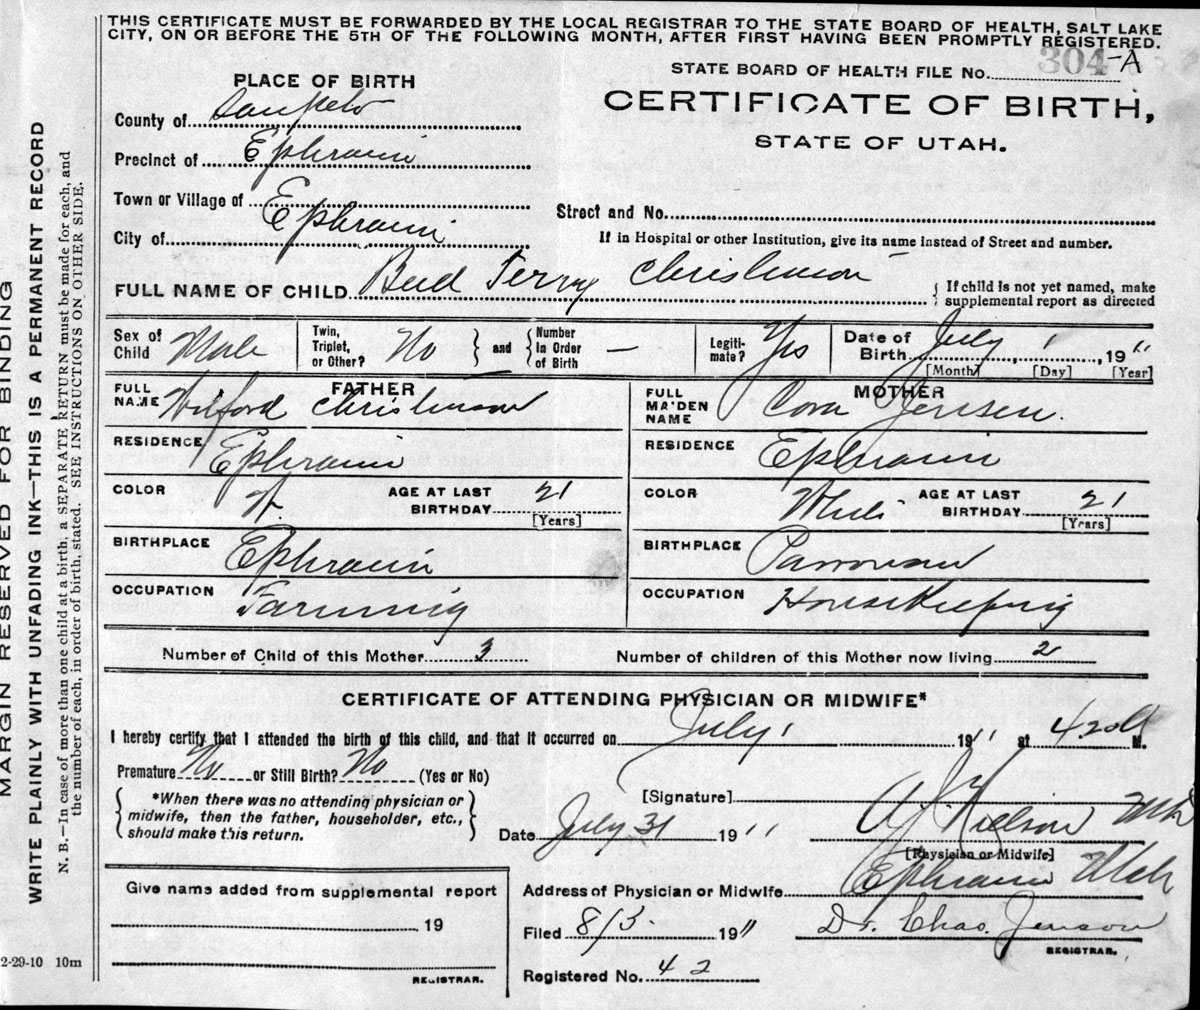 THIS CERTIFICATE MUST BE FORWARDED BY THE LOCAL REGISTRAR TO THE STATE BOARD OF HEALTH, SALT LAKE
CITY, ON OR BEFORE THE 5TH OF THE FOLLOWING MONTH, AFTER FIRST HAVING BEEN PROMPTLY REGISTERED.
STATE BOARD OF HEALTH FILE No. 304-A
CERTIFICATE OF BIRTH,
STATE OF UTAH.
PLACE OF BIRTH
County of Sanpete
Precinct of Ephraim
Town or Village of
City of Ephraim
Street and No.
If in Hospital or other Institution, give its name instead of Street and number.
FULL NAME OF CHILD Bud Terry Christenson
If child is not yet named, make
supplemental report as directed
Sex of Child Male
Twin, Triplet, or Other? No
and Number In Order of Birth —
Legitimate? Yes
Date of Birth July 1, 1911
[Month] [Day] [Year]
FATHER
FULL NAME Wilford Christenson
RESIDENCE Ephraim
COLOR W.
AGE AT LAST BIRTHDAY 21
[Years]
BIRTHPLACE Ephraim
OCCUPATION Farming
MOTHER
FULL MAIDEN NAME Cora Jensen.
RESIDENCE Ephraim
COLOR White
AGE AT LAST BIRTHDAY 21
[Years]
BIRTHPLACE Parrowan
OCCUPATION HouseKeeping
Number of Child of this Mother 3
Number of children of this Mother now living 2
CERTIFICATE OF ATTENDING PHYSICIAN OR MIDWIFE*
I hereby certify that I attended the birth of this child, and that it occurred on July 1 1911 at 4.20 M.
Premature No or Still Birth? No (Yes or No)
*When there was no attending physician or
midwife, then the father, householder, etc.,
should make this return.
[Signature] Nielson MD
[Physician or Midwife]
Date July 31 1911
Address of Physician or Midwife Ephraim Utah
Filed 8/3. 1911 Dr. Chas. Jenson
REGISTRAR.
Registered No. 42
Give name added from supplemental report
19
REGISTRAR.
2-29-10 10m
MARGIN RESERVED FOR BINDING
WRITE PLAINLY WITH UNFADING INK—THIS IS A PERMANENT RECORD
N. B.—In case of more than one child at a birth, a SEPARATE RETURN must be made for each, and
the number of each, in order of birth, stated. SEE INSTRUCTIONS ON OTHER SIDE.